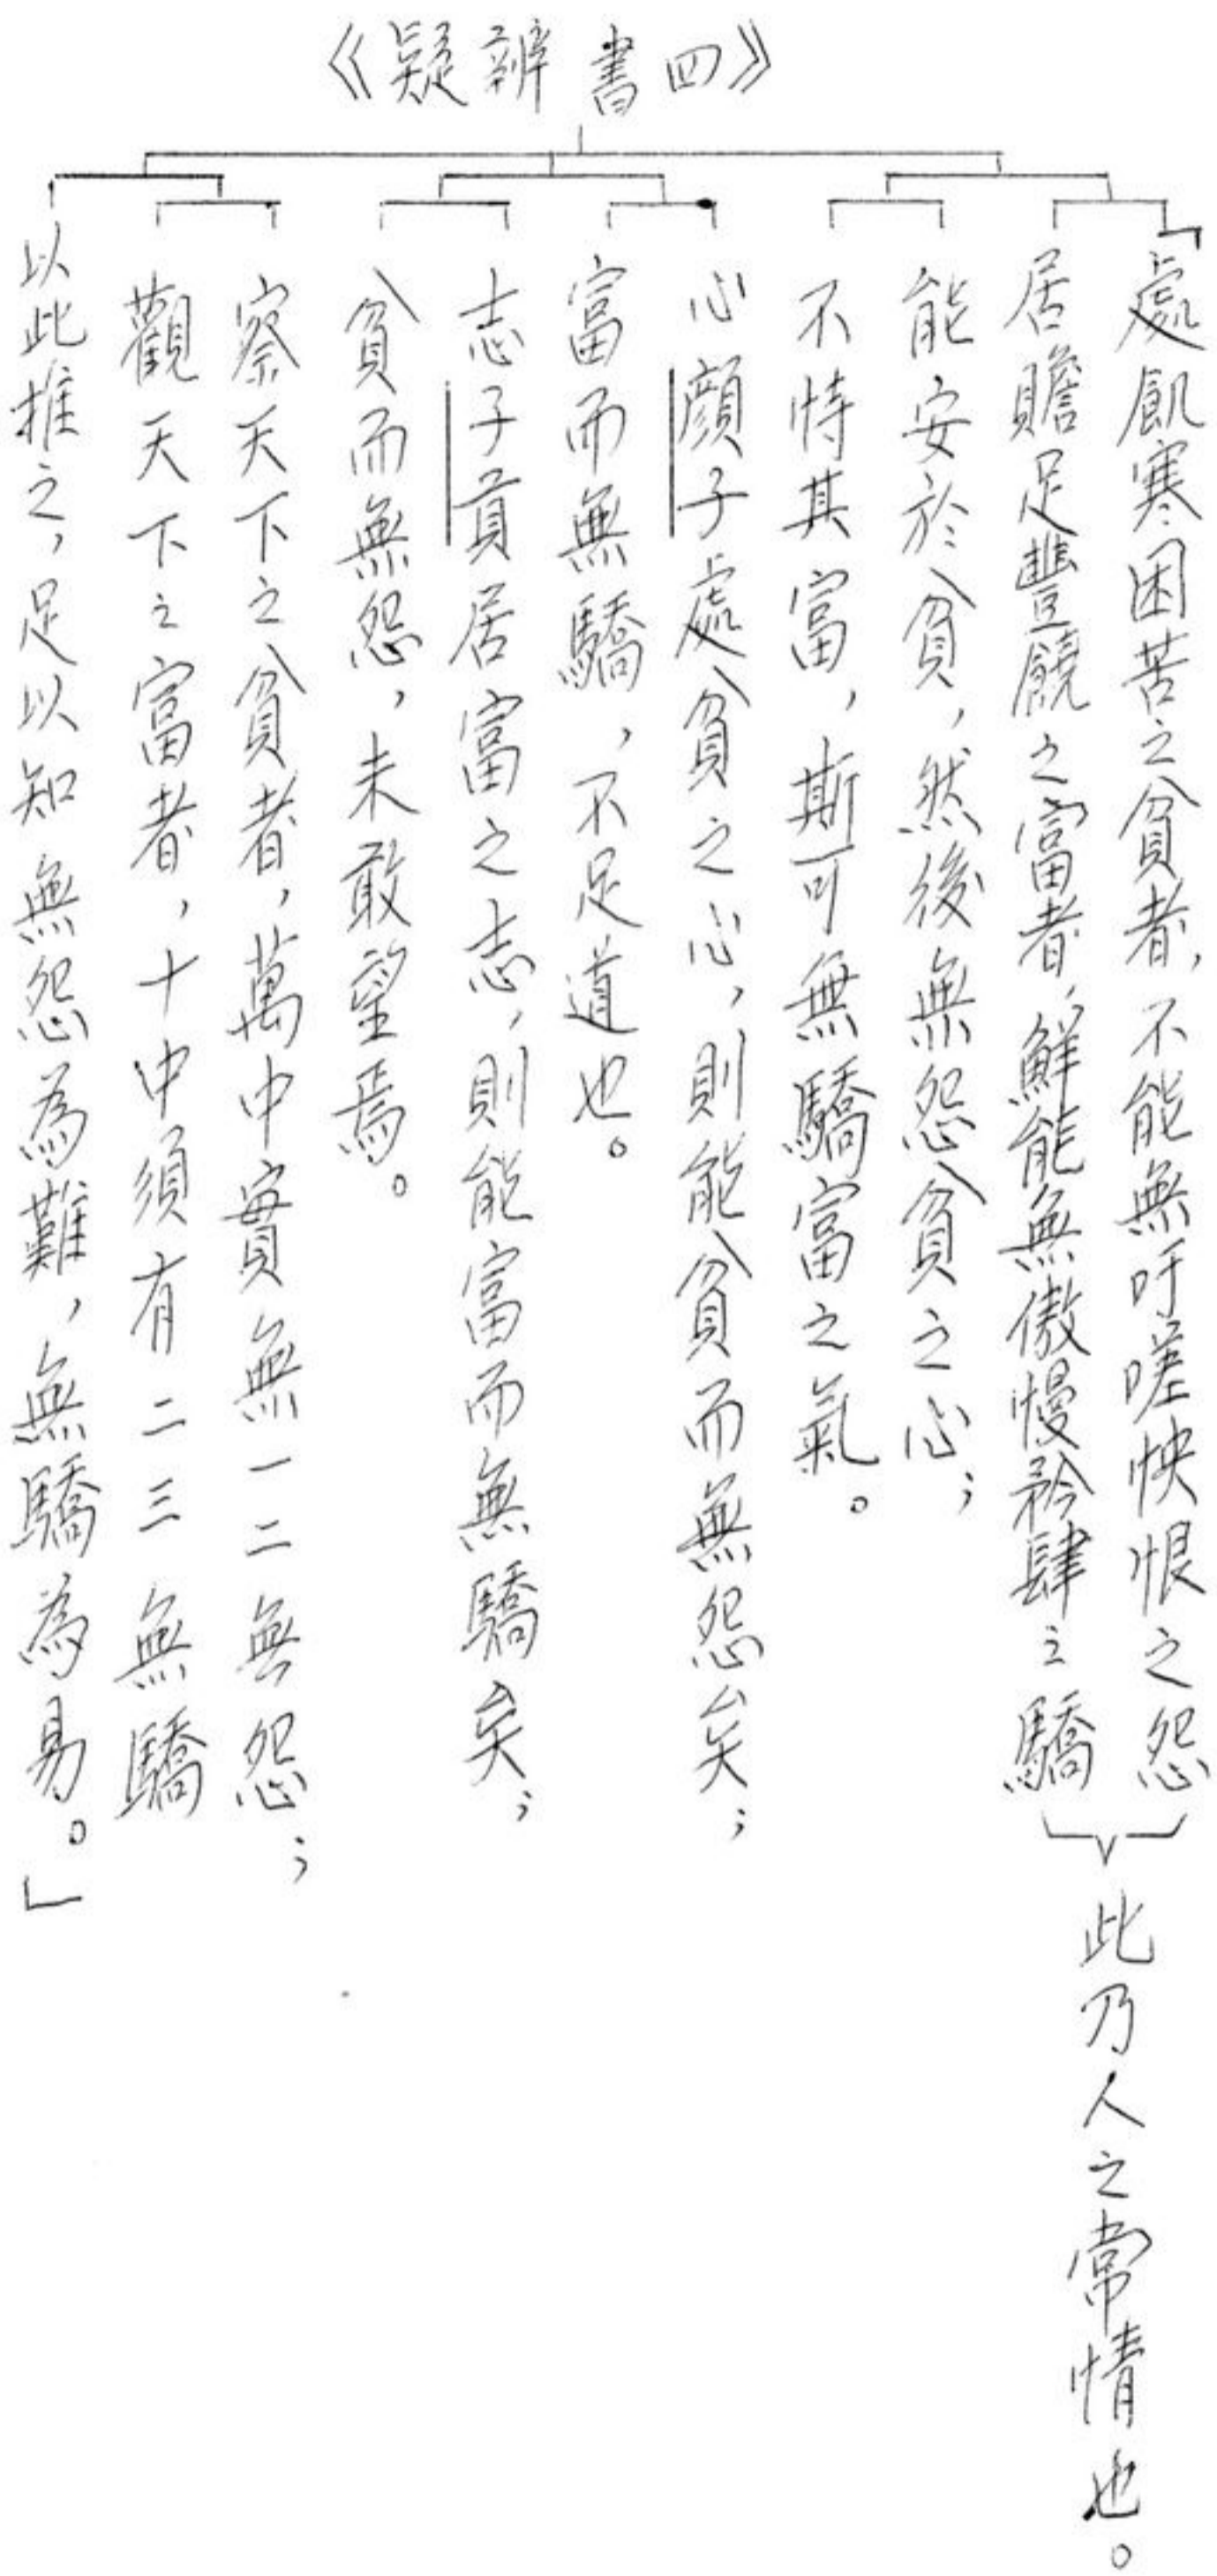 《四書辨疑》
「處飢寒困苦之貧者，不能無吁嗟怏恨之怨
居贍足豐饒之富者，鮮能無傲慢矜肆之驕
此乃人之常情也。
能安於貧，然後無怨貧之心；
不恃其富，斯可無驕富之氣。
心顏子處貧之心，則能貧而無怨矣；
富而無驕，不足道也。
志子貢居富之志，則能富而無驕矣；
貧而無怨，未敢望焉。
察天下之貧者，萬中實無一二無怨；
觀天下之富者，十中須有二三無驕
以此推之，足以知無怨為難，無驕為易。」